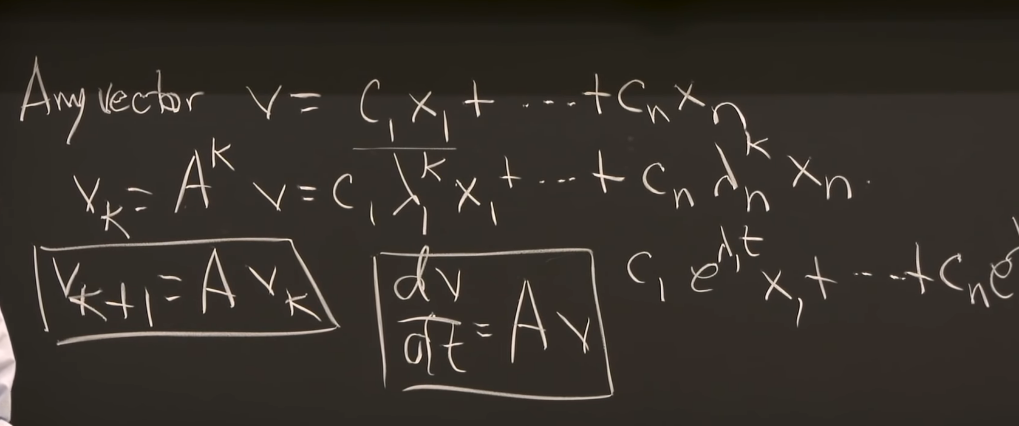 Any vector v = c₁x₁ + ... + cₙxₙ
vₖ = Aᵏ v = c₁ λ₁ᵏ x₁ + ... + cₙ λₙᵏ xₙ.
vₖ₊₁ = A vₖ
dv/dt = A v
c₁ e^{λ₁t} x₁ + ... + cₙ e